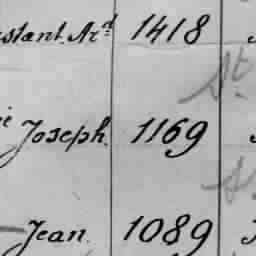 stant. Ard 1418
St
ie Joseph. 1169
Jean. 1089